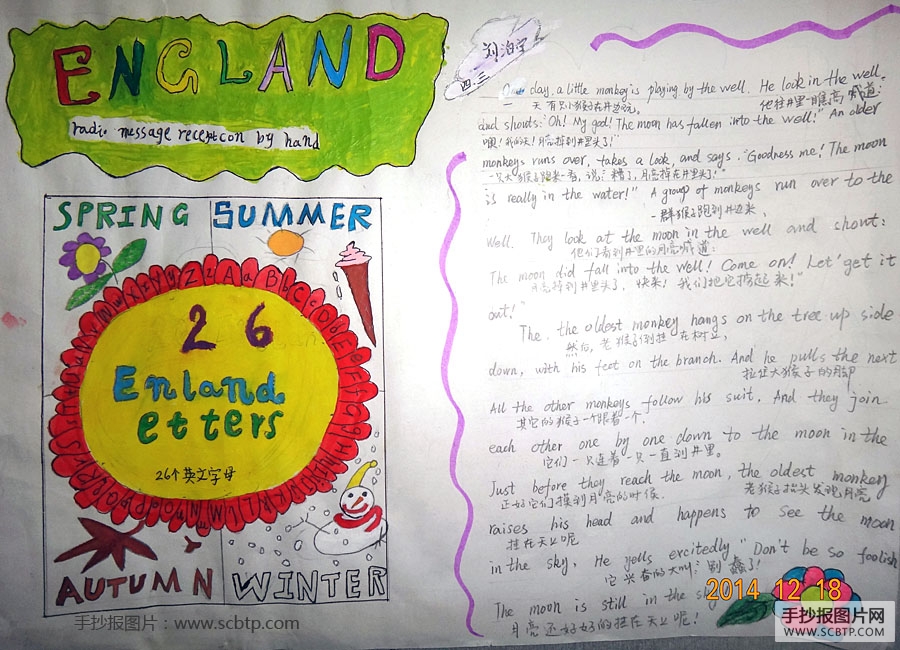 ENGLAND
radio message receptcon by hand
SPRING SUMMER
26
Enland
etters
26个英文字母
AUTUMN WINTER
手抄报图片：www.scbtp.com
刘泊宇
四.三
One day, a little monkey is playing by the well. He look in the well.
一天有只小猴子在井边玩。 他往井里一瞧高喊道：
and shouts: "Oh! My god! The moon has fallen into the well!" An older
噢！我的天！月亮掉到井里头了！"
monkeys runs over, takes a look, and says. "Goodness me! The moon
一只大猴子跑来一看，说：糟了，月亮掉在井里头了！"
is really in the water!" A group of monkeys run over to the
一群猴子跑到井边来，
Well. They look at the moon in the well and shout:
他们看到井里的月亮喊道：
The moon did fall into the well! Come on! Let' get it
月亮掉到井里头了，快来！我们把它捞起来！"
out!"
The. the oldest monkey hangs on the tree up side
然后，老猴子倒挂在树上，
down, with his feet on the branch. And he pulls the next
拉住大猴子的脚
All the other monkeys follow his suit. And they join
其它的猴子一个跟着一个，
each other one by one down to the moon in the
它们一只连着一只一直到井里。
Just before they reach the moon, the oldest monkey
正好它们摸到月亮的时候， 老猴子抬头发现月亮
raises his head and happens to see the moon
挂在天上呢
in the sky, He yells excitedly "Don't be so foolish
它兴奋的大叫：别蠢了！
The moon is still in the sky
月亮还好好的挂在天上呢！
2014 12 18
手抄报图片网
WWW.SCBTP.COM